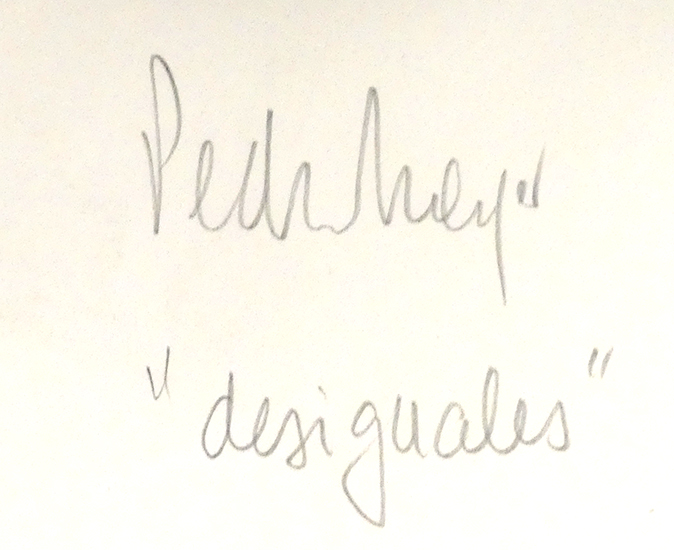 Pedro Meyer
"desiguales"